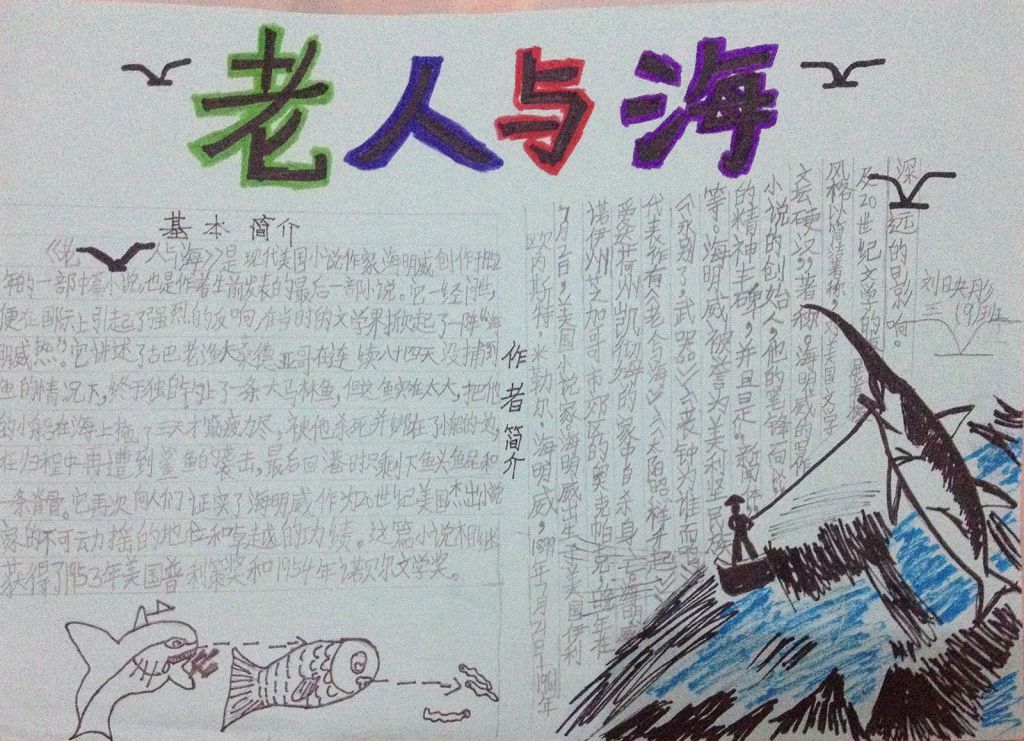 老人与海
基本简介
《老人与海》是现代美国小说作家海明威创作于1952
年的一部中篇小说,也是作者生前发表的最后一部小说。它一经问世,
便在国际上引起了强烈的反响,在当时的文学界掀起了一阵“海
明威热”。它讲述了古巴老渔夫桑德亚哥在连续八十四天没捕到
鱼的情况下,终于独自钓上了一条大马林鱼,但这鱼实在太大,把他
的小船在海上拖了三天才筋疲力尽,被他杀死并绑在了小船的边,
在归程中再遭到鲨鱼的袭击,最后回港时只剩下鱼头鱼尾和
一条脊骨。它再次向人们证实了海明威作为20世纪美国杰出小说
家的不可动摇的地位和卓越的功绩。这篇小说相继
获得了1953年美国普利策奖和1954年诺贝尔文学奖。
作者简介
欧内斯特·米勒尔·海明威,1899年7月21日-1961年
7月2日,美国小说家。海明威出生于美国伊利
诺伊州芝加哥市郊的奥克帕克,晚年在
爱达荷州凯彻姆的家中自杀身亡。海明威
代表作有《老人与海》《太阳照样升起》
《永别了,武器》《丧钟为谁而鸣》
等。海明威被誉为美利坚民族
的精神丰碑,并且是“新闻体
小说”的创始人,他的笔锋向以
文坛硬汉”著称。海明威的写作
风格以简洁著称,对美国文学
及20世纪文学的发展
深远的影响。
刘映彤
三(9)班